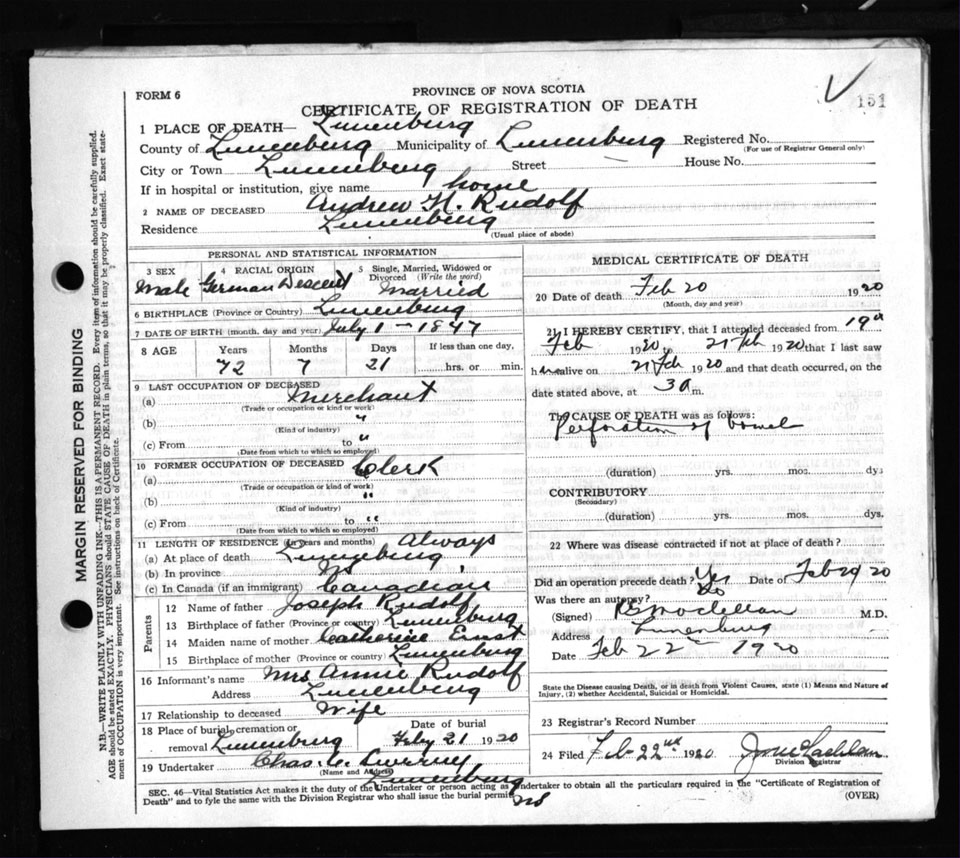 151
FORM 6
PROVINCE OF NOVA SCOTIA
CERTIFICATE OF REGISTRATION OF DEATH
1 PLACE OF DEATH— Lunenburg
County of Lunenburg Municipality of Lunenburg Registered No.
(For use of Registrar General only)
City or Town Lunenburg Street — House No.
If in hospital or institution, give name home
2 NAME OF DECEASED Andrew H. Rudolf
Residence Lunenburg
(Usual place of abode)
PERSONAL AND STATISTICAL INFORMATION
3 SEX 4 RACIAL ORIGIN 5 Single, Married, Widowed or Divorced (Write the word)
Male German Descent Married
6 BIRTHPLACE (Province or Country) Lunenburg
7 DATE OF BIRTH (month, day and year) July 1 - 1847
8 AGE Years Months Days If less than one day,
72 7 21 hrs. or min.
9 LAST OCCUPATION OF DECEASED
(a) Merchant
(Trade or occupation or kind of work)
(b) "
(Kind of industry)
(c) From to "
(Date from which to which so employed)
10 FORMER OCCUPATION OF DECEASED
(a) Clerk
(Trade or occupation or kind of work)
(b) "
(Kind of industry)
(c) From to "
(Date from which to which so employed)
11 LENGTH OF RESIDENCE (in years and months) Always
(a) At place of death Lunenburg
(b) In province NS
(c) In Canada (if an immigrant) Canadian
Parents
12 Name of father Joseph Rudolf
13 Birthplace of father (Province or country) Lunenburg
14 Maiden name of mother Catherine Ernst
15 Birthplace of mother (Province or country) Lunenburg
16 Informant's name Mrs Annie Rudolf
Address Lunenburg
17 Relationship to deceased Wife
18 Place of burial, cremation or removal Lunenburg Date of burial Feby 21 1920
19 Undertaker Chas. C.
(Name and Address)
Lunenburg
NS
MEDICAL CERTIFICATE OF DEATH
20 Date of death Feb 20 1920
(Month, day and year)
21 I HEREBY CERTIFY, that I attended deceased from 19th
Feb 1920, 21 Feb 1920 that I last saw
h alive on 21 Feb 1920 and that death occurred, on the
date stated above, at 3 a m.
The CAUSE OF DEATH was as follows:
Perforation of bowel
(duration) yrs. mos. dys
CONTRIBUTORY
(Secondary)
(duration) yrs. mos. dys.
22 Where was disease contracted if not at place of death?
Did an operation precede death? Yes Date of Feb 20
Was there an autopsy?
(Signed) M.D.
Address Lunenburg
Date Feb 22nd 1920
State the Disease causing Death, or in death from Violent Causes, state (1) Means and Nature of
Injury, (2) whether Accidental, Suicidal or Homicidal.
23 Registrar's Record Number
24 Filed Feb 22nd 1920
Division Registrar
SEC. 46—Vital Statistics Act makes it the duty of the Undertaker or person acting as Undertaker to obtain all the particulars required in the "Certificate of Registration of
Death" and to fyle the same with the Division Registrar who shall issue the burial permit.
(OVER)
MARGIN RESERVED FOR BINDING
N.B.—WRITE PLAINLY WITH UNFADING INK—THIS IS A PERMANENT RECORD. Every item of information should be carefully supplied.
AGE should be stated EXACTLY. PHYSICIANS should STATE CAUSE OF DEATH in plain terms, so that it may be properly classified. Exact state-
ment of OCCUPATION is very important. See instructions on back of Certificate.